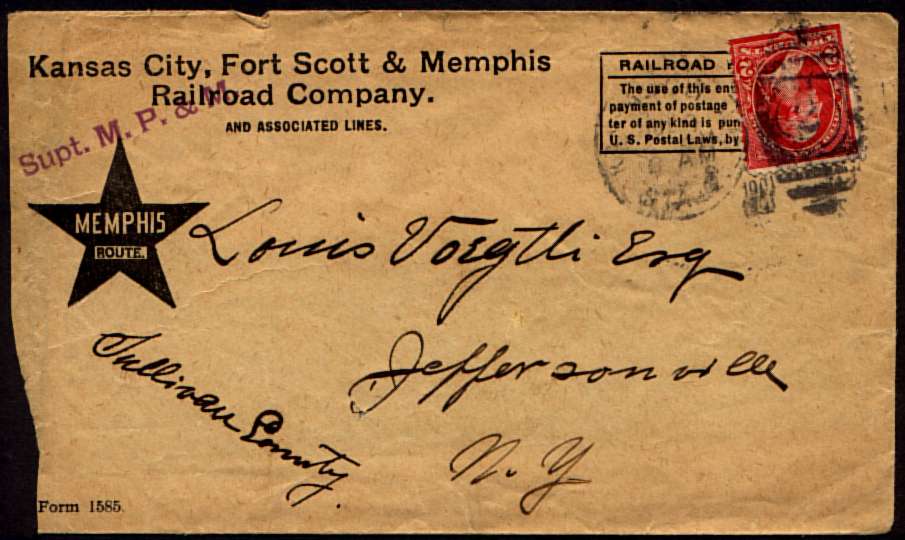 Kansas City, Fort Scott & Memphis
Railroad Company.
AND ASSOCIATED LINES.
Supt. M. P. & M.
MEMPHIS
ROUTE.
RAILROAD
The use of this
payment of postage
ter of any kind is
U. S. Postal Laws, by
AM
1901
Louis Voegtli Esq
Jeffersonville
N. Y
Sullivan County.
Form 1585.